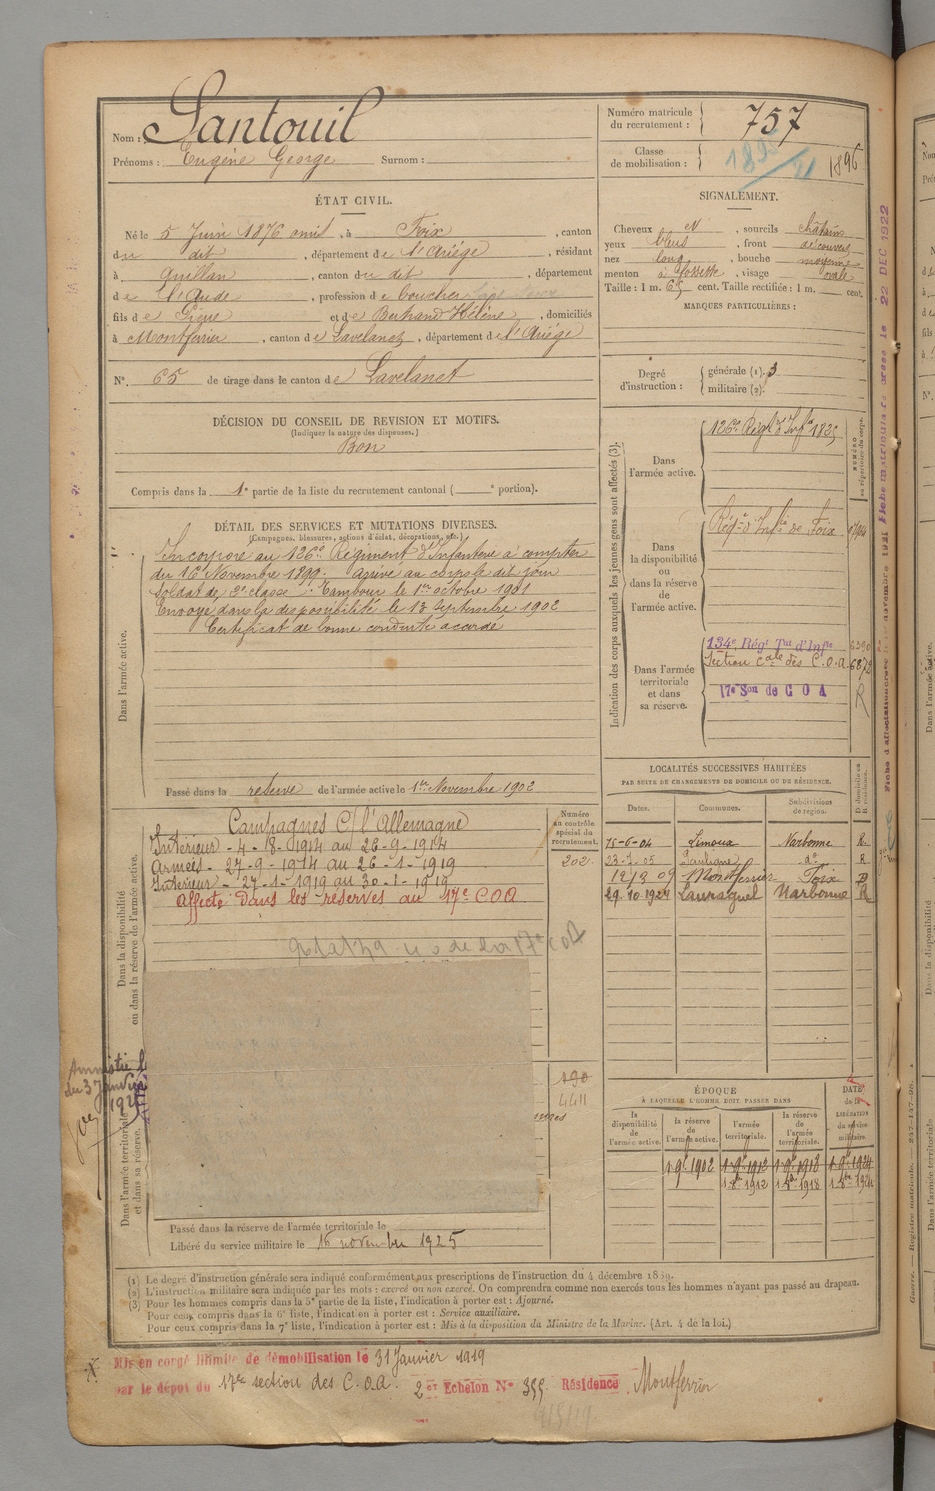 Nom : Santouil
Prénoms : Eugène George Surnom :
Numéro matricule du recrutement : 757
Classe de mobilisation : 1896
ÉTAT CIVIL.
Né le 5 Juin 1876 , à Foix , canton
du dit , département de l'Ariège , résidant
à Quillan , canton du dit , département
de l'Aude , profession de boucher
fils de Pierre et de Bertrand Hélène , domiciliés
à Montferrier , canton de Lavelanet , département de l'Ariége
N°. 65 de tirage dans le canton de Lavelanet
SIGNALEMENT.
Cheveux N , sourcils châtains
yeux bleus , front découvert
nez long , bouche moyenne
menton à fossette , visage ovale
Taille : 1 m. 65 cent. Taille rectifiée : 1 m. cent.
MARQUES PARTICULIÈRES :
Degré d'instruction : générale (1). 3
militaire (2).
DÉCISION DU CONSEIL DE REVISION ET MOTIFS.
(Indiquer la nature des dispenses.)
Bon
Compris dans la 1e partie de la liste du recrutement cantonal ( e portion).
DÉTAIL DES SERVICES ET MUTATIONS DIVERSES.
(Campagnes, blessures, actions d'éclat, décorations, etc.)
Dans l'armée active.
Incorporé au 126e Régiment d'Infanterie à compter
du 16 Novembre 1899. Arrivé au corps le dit jour
soldat de 2e classe. Tambour le 1er octobre 1901
Envoyé dans la disponibilité le 13 Septembre 1902
Certificat de bonne conduite accordé
Passé dans la réserve de l'armée active le 1er Novembre 1902
Indication des corps auxquels les jeunes gens sont affectés (3).
NUMÉRO au répertoire du corps.
Dans l'armée active.
126e Régt d'Infie
Dans la disponibilité ou dans la réserve de l'armée active.
Régt d'Infie de Foix
Dans l'armée territoriale et dans sa réserve.
134e Régt Tial d'Infie 6390
Section Cale des C.O.A. 6872
17e Son de C O A R
LOCALITÉS SUCCESSIVES HABITÉES
PAR SUITE DE CHANGEMENTS DE DOMICILE OU DE RÉSIDENCE.
Dates. Communes. Subdivisions de région. D. domicile ou R. résidence.
15-6-04 Limoux Narbonne R.
23-7-05 Pauligne do R
12/9 09 Montferrier Foix D
29.10.1924 Lauraguel Narbonne R
Dans la disponibilité ou dans la réserve de l'armée active.
Numéro au contrôle spécial du recrutement.
202.
Campagnes C/ l'Allemagne
Intérieur - 4-8-1914 au 26-9-1914
Armées - 27-9-1914 au 26-1-1919
Intérieur - 27-1-1919 au 30-1-1919
Affecté dans les réserves au 17e COA
Amnistie L.
du 3 Janvier
Dans l'armée territoriale et dans sa réserve.
190
4411
ÉPOQUE
À LAQUELLE L'HOMME DOIT PASSER DANS
la disponibilité de l'armée active. la réserve de l'armée active. l'armée territoriale. la réserve de l'armée territoriale. DATE de la LIBÉRATION du service militaire.
Passé dans la réserve de l'armée territoriale le
Libéré du service militaire le 16 novembre 1925
(1) Le degré d'instruction générale sera indiqué conformément aux prescriptions de l'instruction du 4 décembre 1889.
(2) L'instruction militaire sera indiquée par les mots : exercé ou non exercé. On comprendra comme non exercés tous les hommes n'ayant pas passé au drapeau.
(3) Pour les hommes compris dans la 5e partie de la liste, l'indication à porter est : Ajourné.
Pour ceux compris dans la 6e liste, l'indication à porter est : Service auxiliaire.
Pour ceux compris dans la 7e liste, l'indication à porter est : Mis à la disposition du Ministre de la Marine. (Art. 4 de la loi.)
Mis en congé illimité de démobilisation le 31 Janvier 1919
par le dépôt du 17e section des C.O.A. 2e Echelon N° 355 Résidence Montferrier